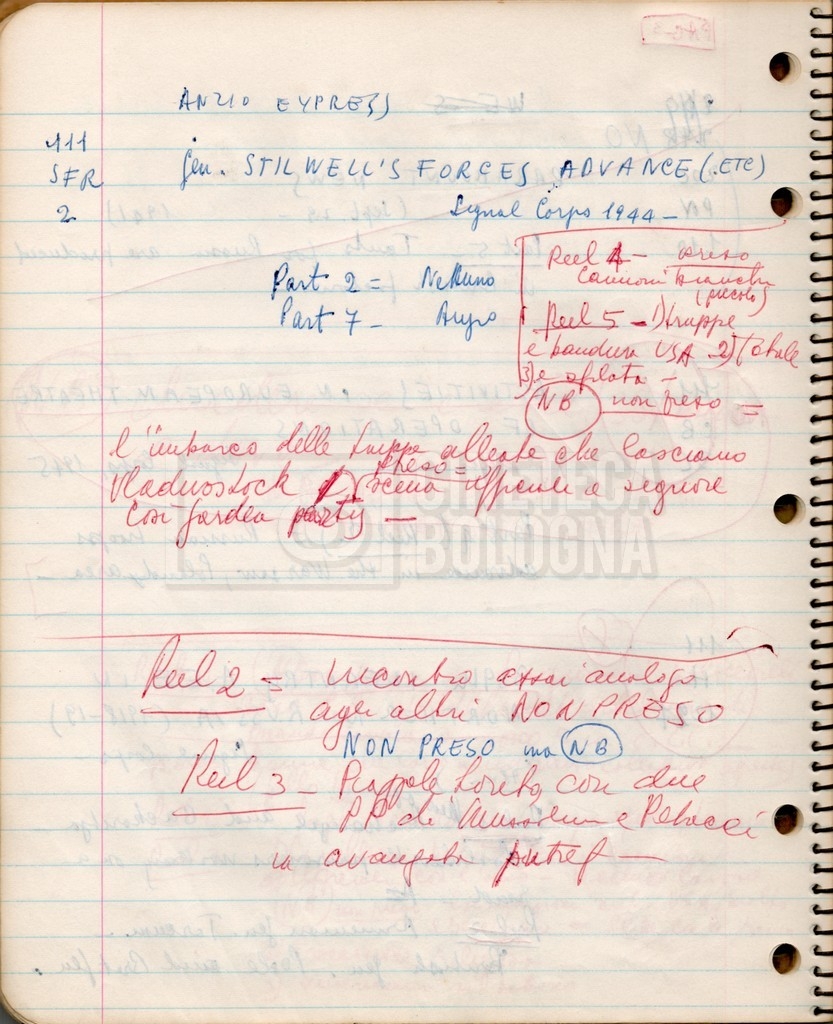 ANZIO EXPRESS
111
SFR
2
Gen. STILWELL'S FORCES ADVANCE (.ETC)
Signal Corps 1944 —
Part 2 = Nettuno
Part 7 - Anzio
Reel 4 — preso
Cannoni
(piccolo)
Reel 5 — 1) truppe
e bandiera USA 2) Totale
3) e sfilata —
NB non preso =
l'imbarco delle truppe alleate che lasciano
Vladivostock preso = scena ufficiali e signore
Così garden party —
Reel 2 = Incontro assai analogo
agli altri NON PRESO
NON PRESO ma NB
Reel 3 — Piazzale Loreto con due
PP di Mussolini e Petacci
in avanzata putref —
CINETECA
BOLOGNA